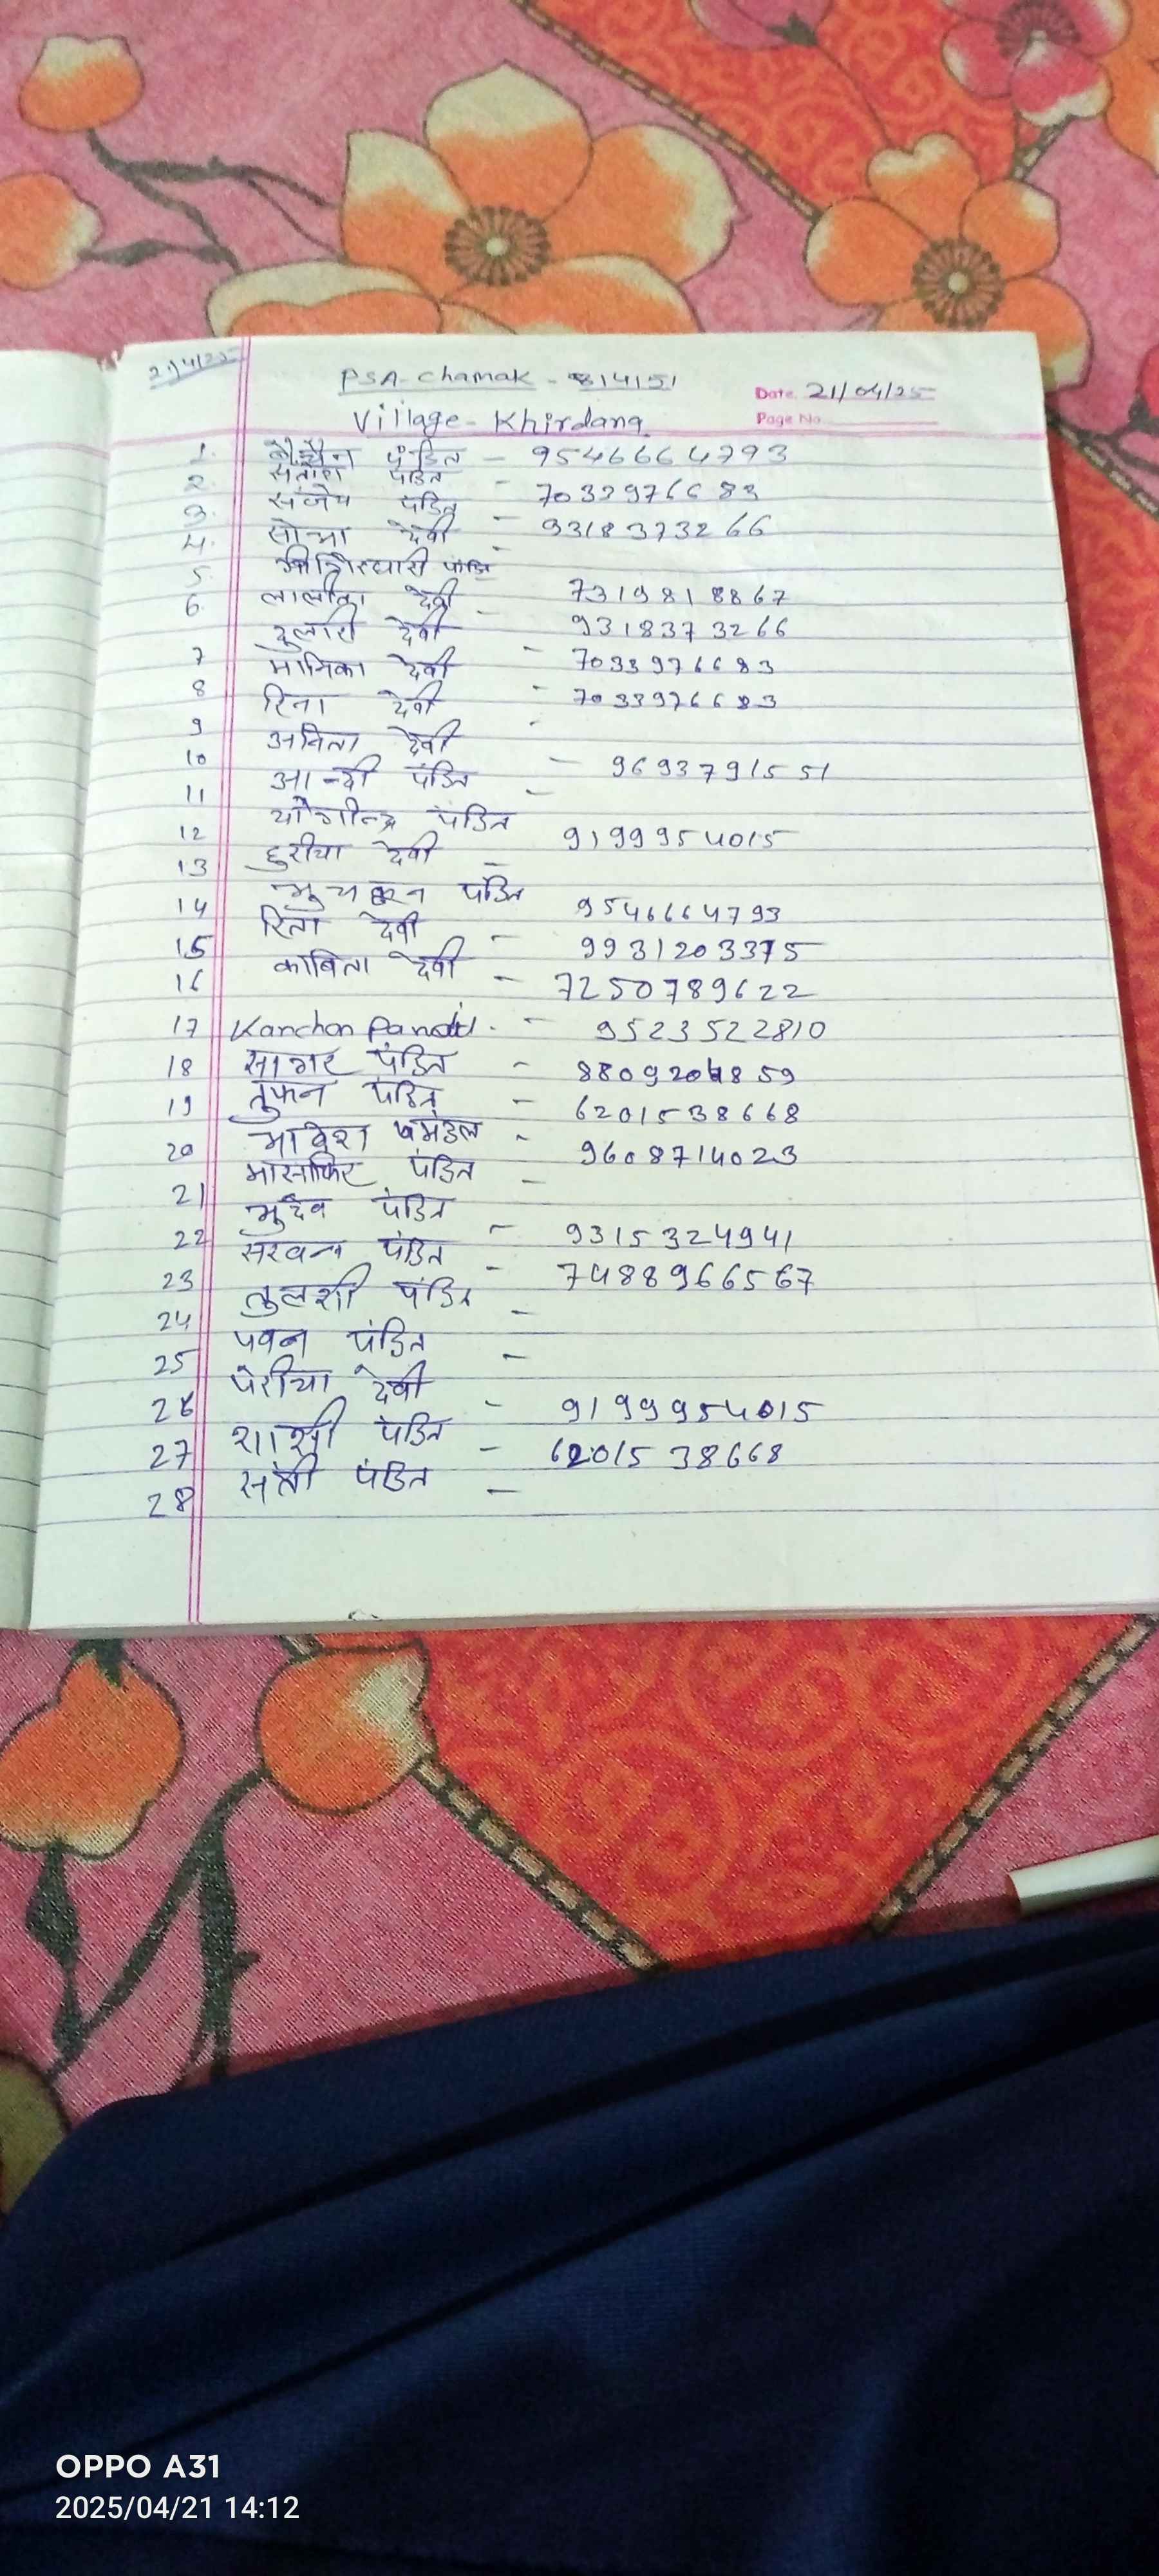 21/4/25
PSA-Chamak - 814151
Date 21/04/25
Village - Khirdang
Page No.
1. पंडित - 9546664793
2. संतोश पंडित - 7033976683
3. संजय पंडित - 9318373266
4. सोमा देवी -
5. पंडित
6. लालीता देवी - 7319818867
7 दुलारी देवी - 9318373266
8 मानिका देवी - 7033976683
9 रिना देवी - 7033976683
10 अनिता देवी - 9693791551
11 आन्दी पंडित -
12 योगीन्द्र पंडित 9199954015
13 दुरीया देवी -
14 पंडित 9546664793
15 रिता देवी - 9931203375
16 काबिता देवी - 7250789622
17 Kanchan Pandit. - 9523522810
18 सागर पंडित - 8809204859
19 तुफन पंडित - 6201538668
20 मंडल - 9608714023
21 पंडित -
22 भुदेव पंडित - 9315324941
23 सरवन पंडित - 7488966567
24 तुलशी पंडित -
25 पवन पंडित -
26 पेरीया देवी - 9199954015
27 शाशी पंडित - 6201538668
28 पंडित -
OPPO A31
2025/04/21 14:12